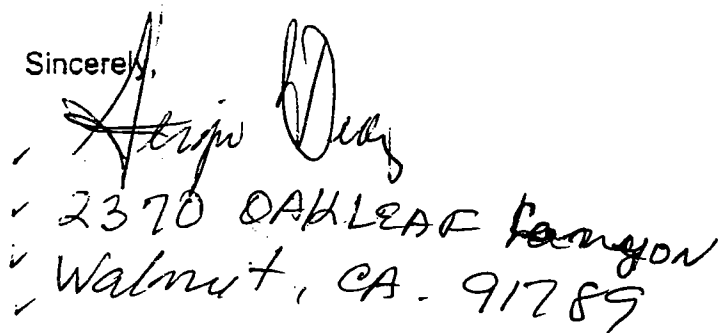 Sincerely,
Diaz
2370 OAKLEAF Canyon
Walnut, CA. 91789